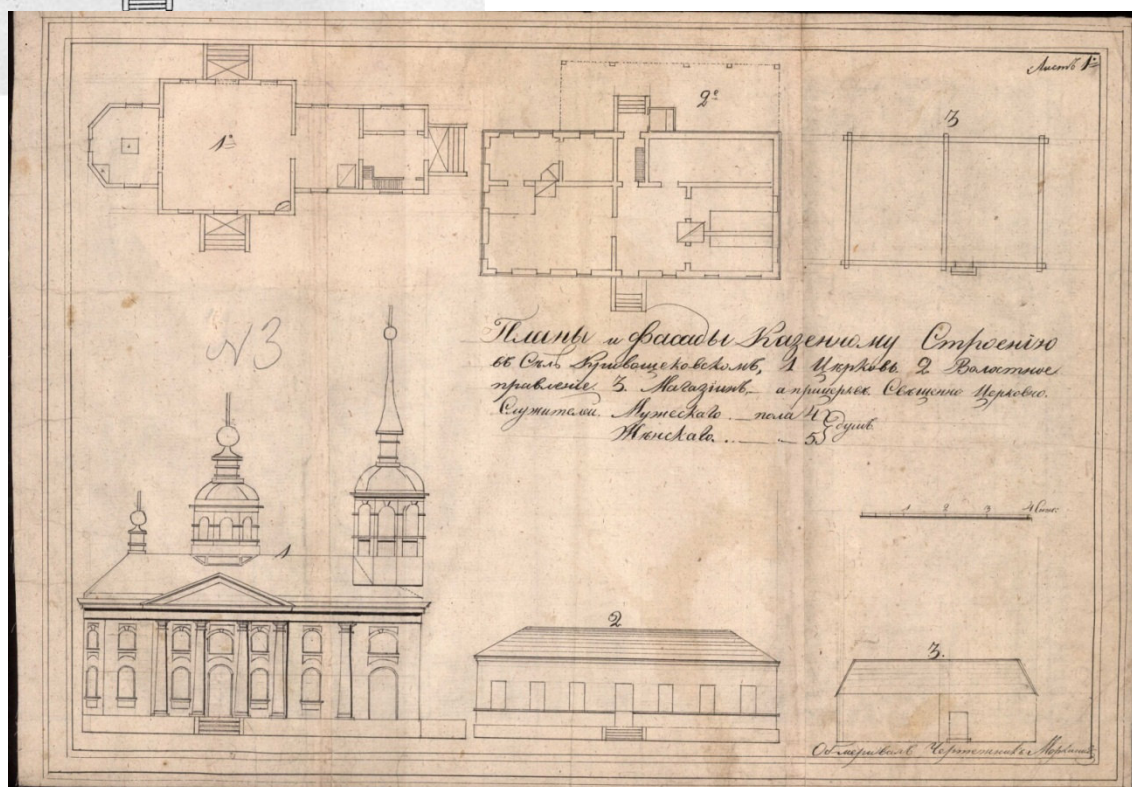 Листъ 1й
1й
2е
3
N3
Планы и Фасады Казенному Строенію
въ Селѣ Кривощековскомъ, 1 Церковь 2 Волостное
правленіе 3. Магазіинъ а при церкве Священно Церковно.
Служителей Мужескаго пола 4
Женскаго 5 душъ
1 2 3 4 Саж:
1
2
3.
Обмеривалъ Чертежникъ